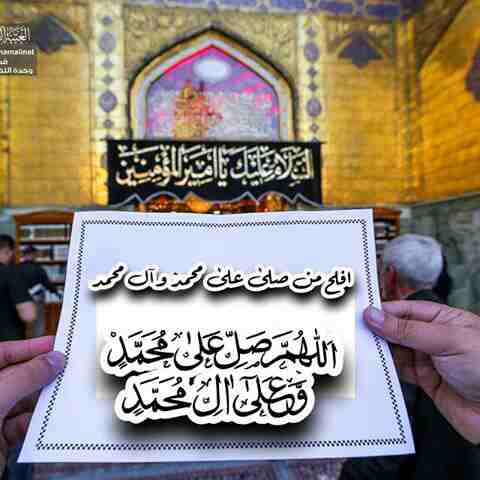 السلام عليك يا أمير المؤمنين
افلح من صلى على محمد وآل محمد
اللهُمَّ صَلِّ عَلىٰ مُحَمَّدٍ
وَّعَلىٰ اٰلِ مُحَمَّدٍ